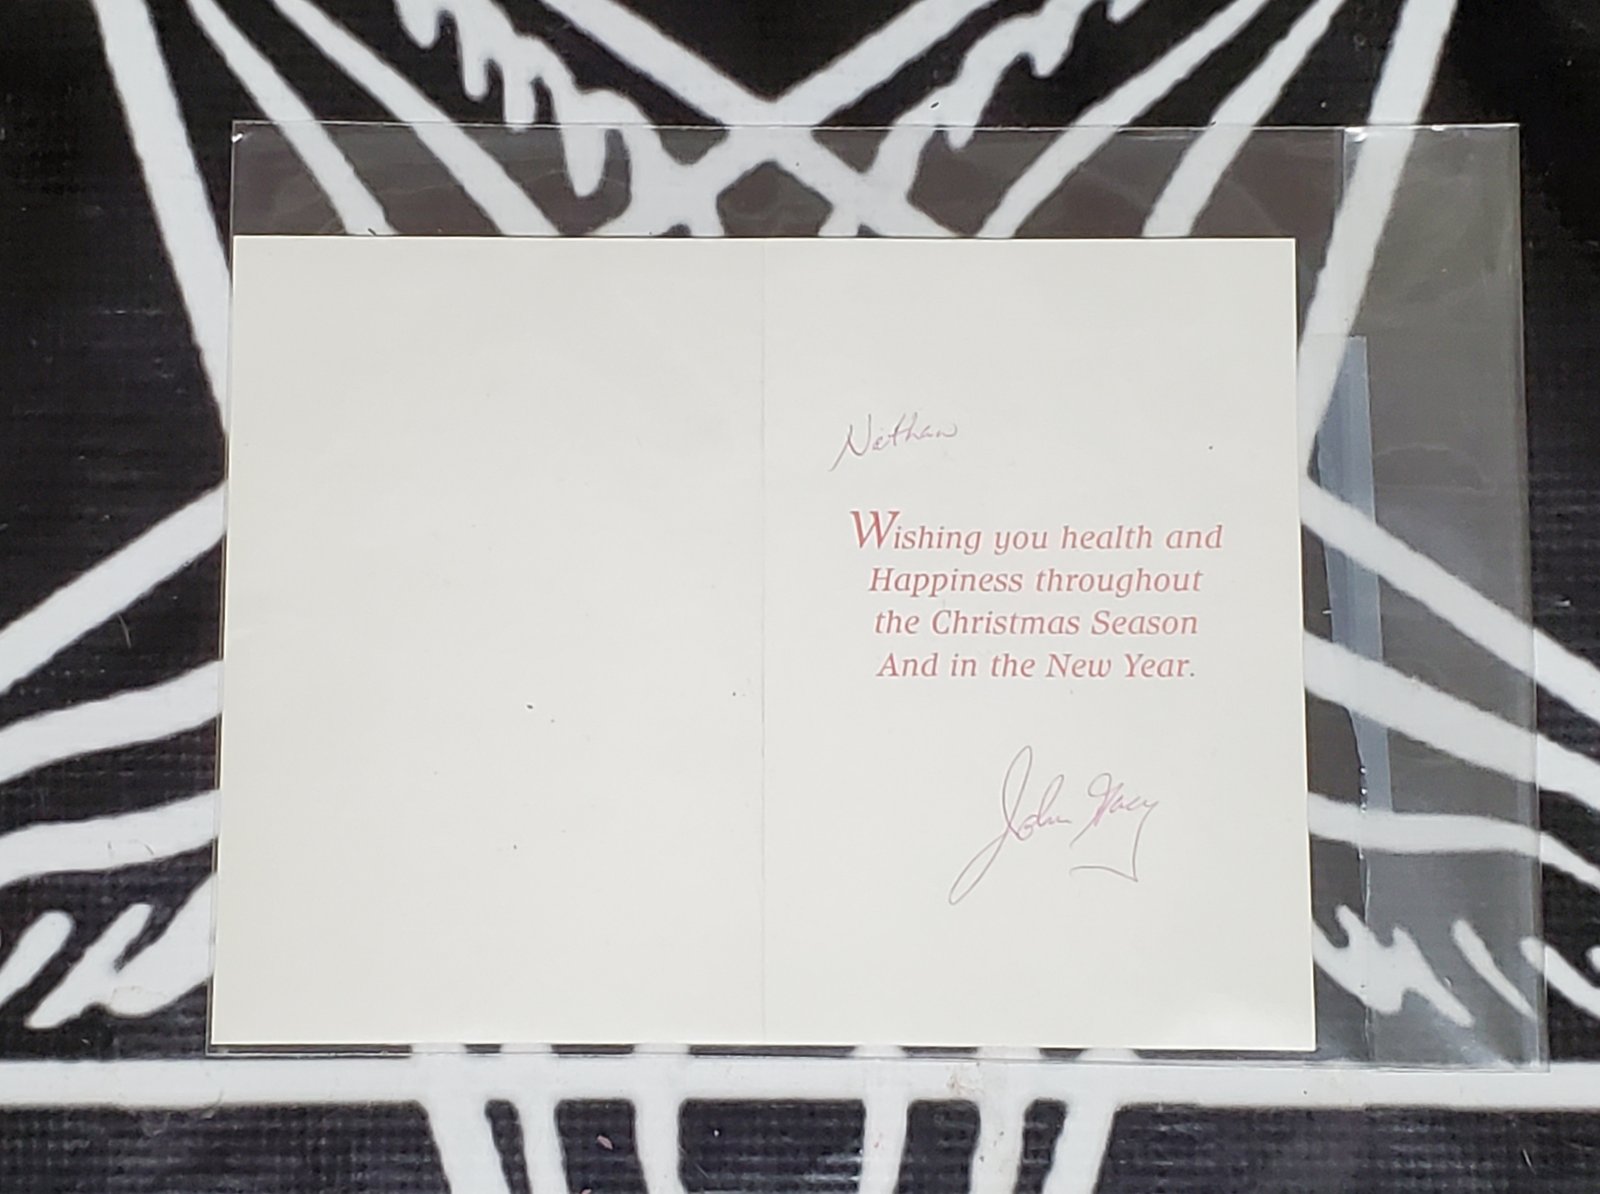 Nathan
Wishing you health and
Happiness throughout
the Christmas Season
And in the New Year.
John Gacy